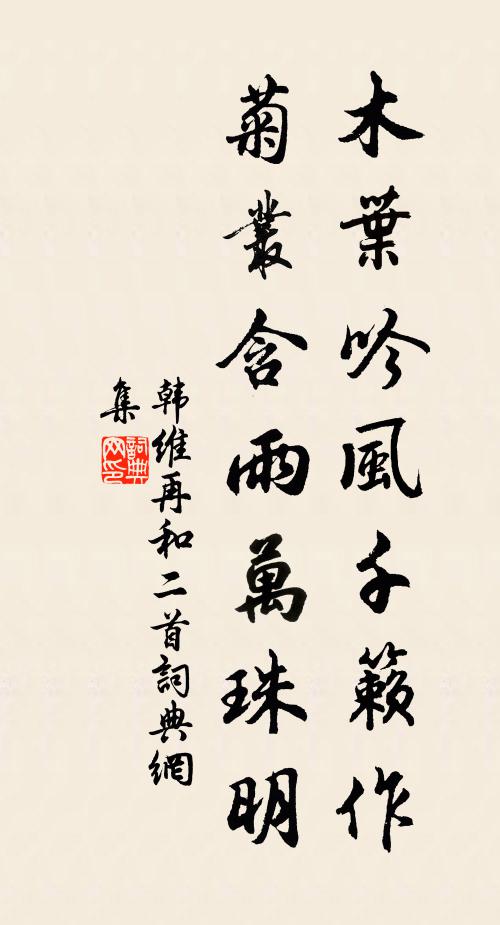 木葉吟風千籟作
菊叢含雨萬珠明
韩維再和二首詞典網
集
詞典
网印